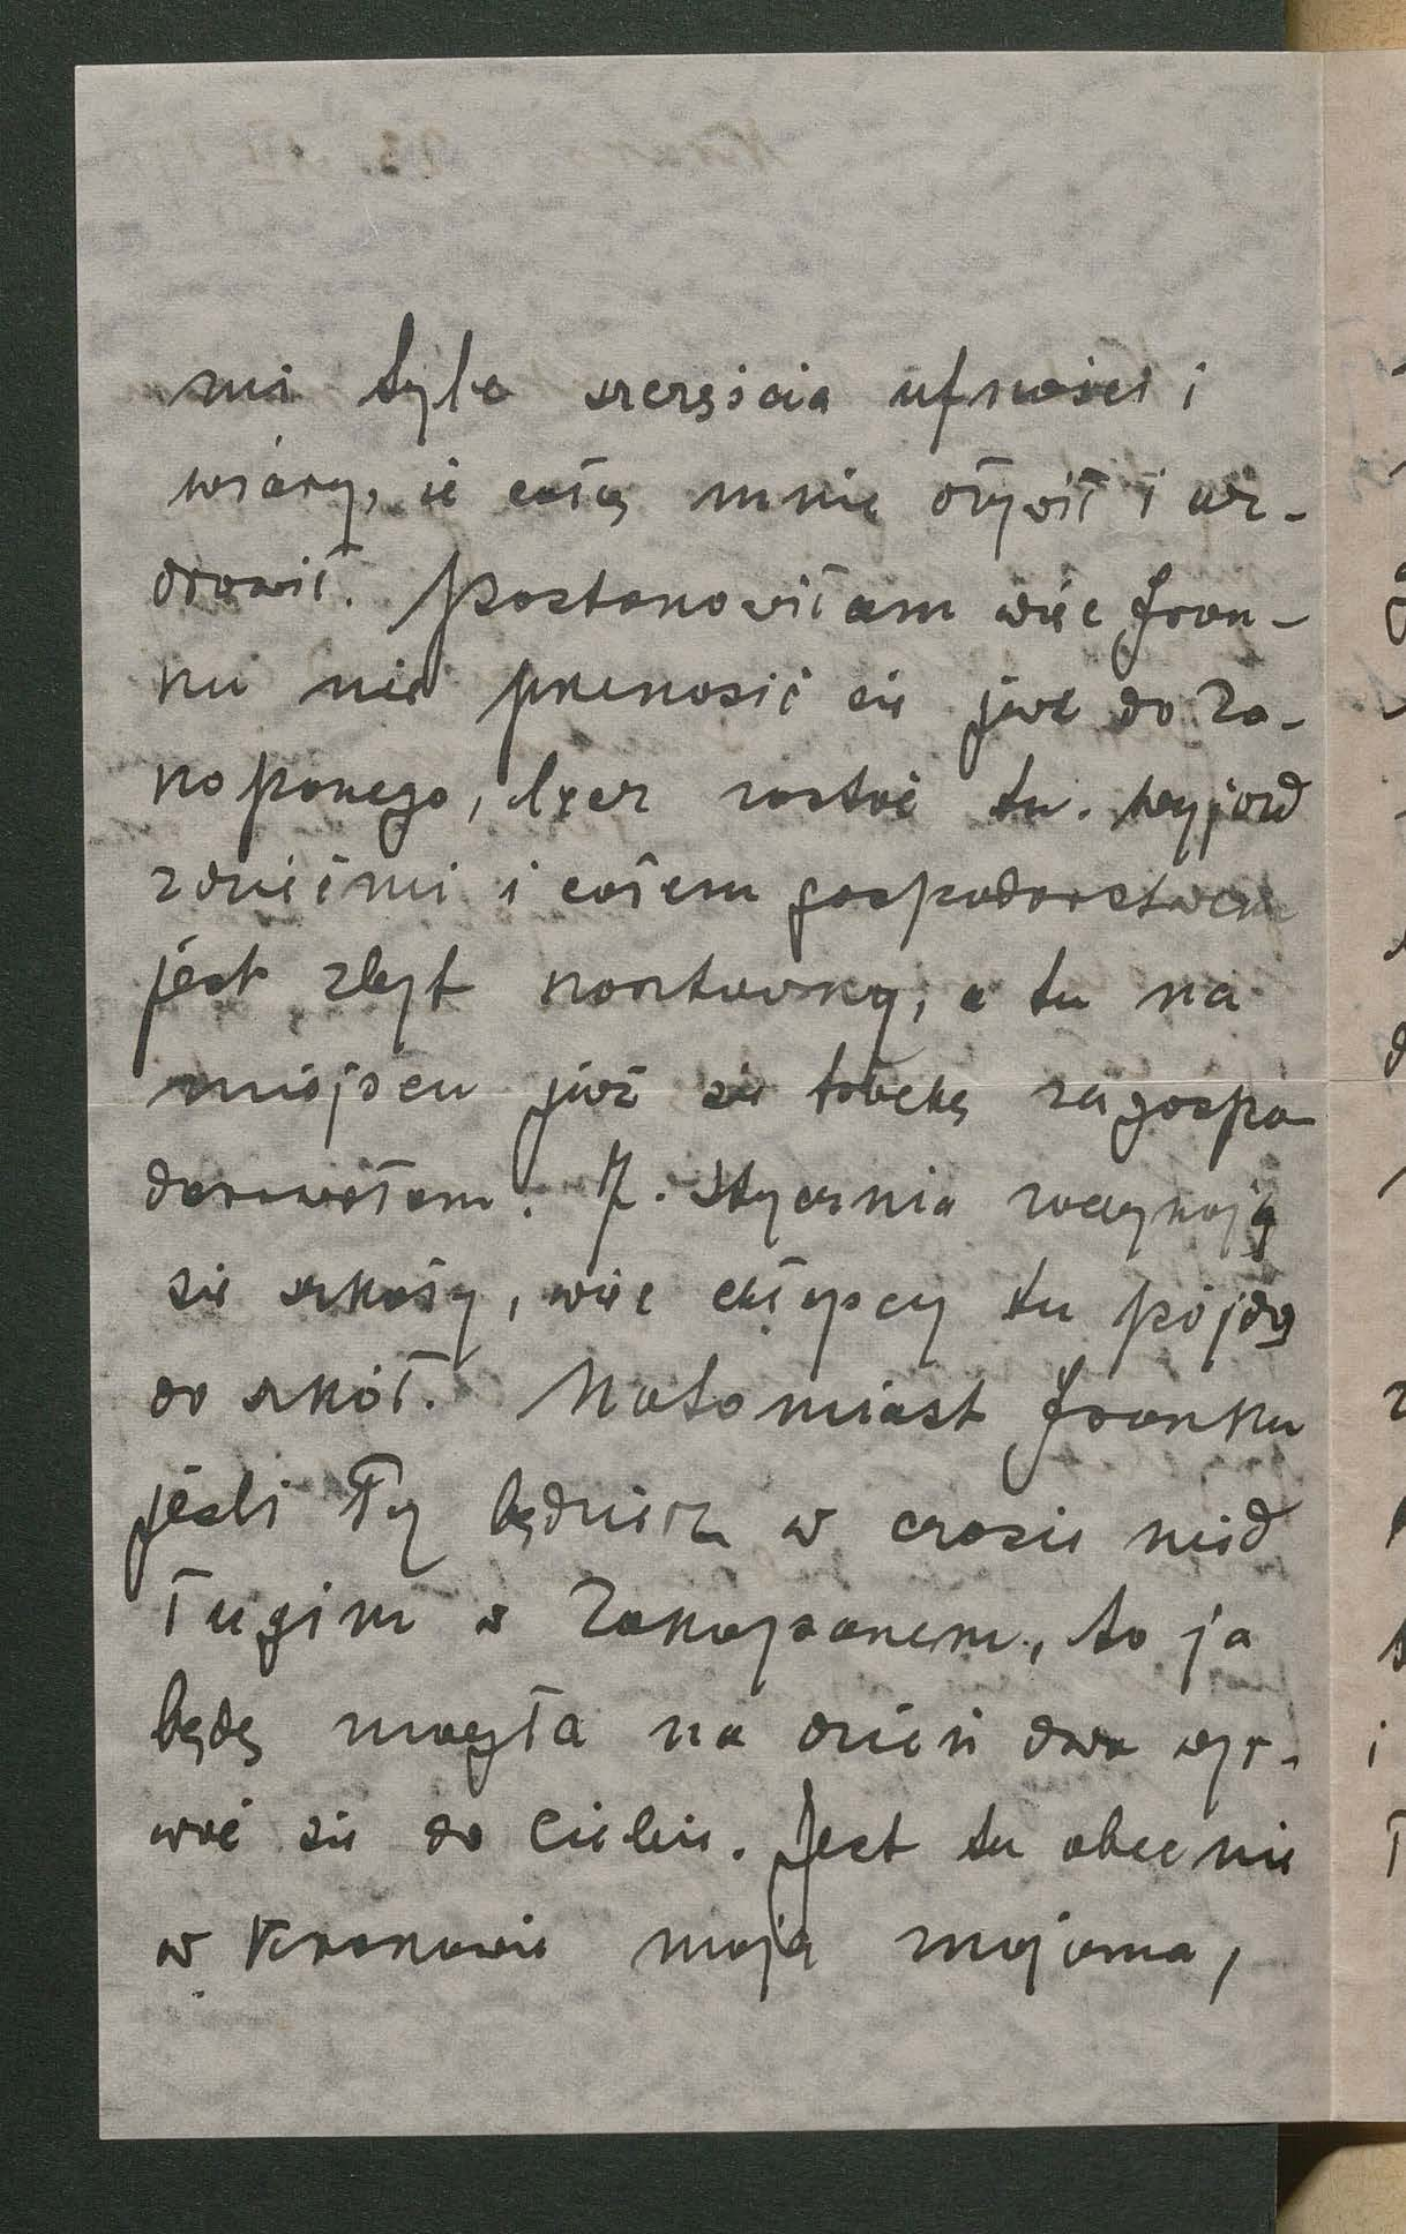 mi tyle szczęścia ufności i
wiary, że całą mnie ożywił i uz-
drowił. Postanowiłam więc Fran-
ku nie przenosić się już do Za-
kopanego, lecz zostać tu. Wyjazd
z dziećmi i całem gospodarstwem
jest zbyt kosztowny, a tu na
miejscu już się troche zagospo
darowałam. 7. Stycznia zaczynają
się szkoły, więc chłopcy tu pójdą
do szkół. Natomiast Franku
jeśli Ty będziesz w czasie nied
ługim w Zakopanem, to ja
będę mogła na dzień dwa wyr-
wać się do Ciebie. Jest tu obecnie
w Krakowie moja mojama,